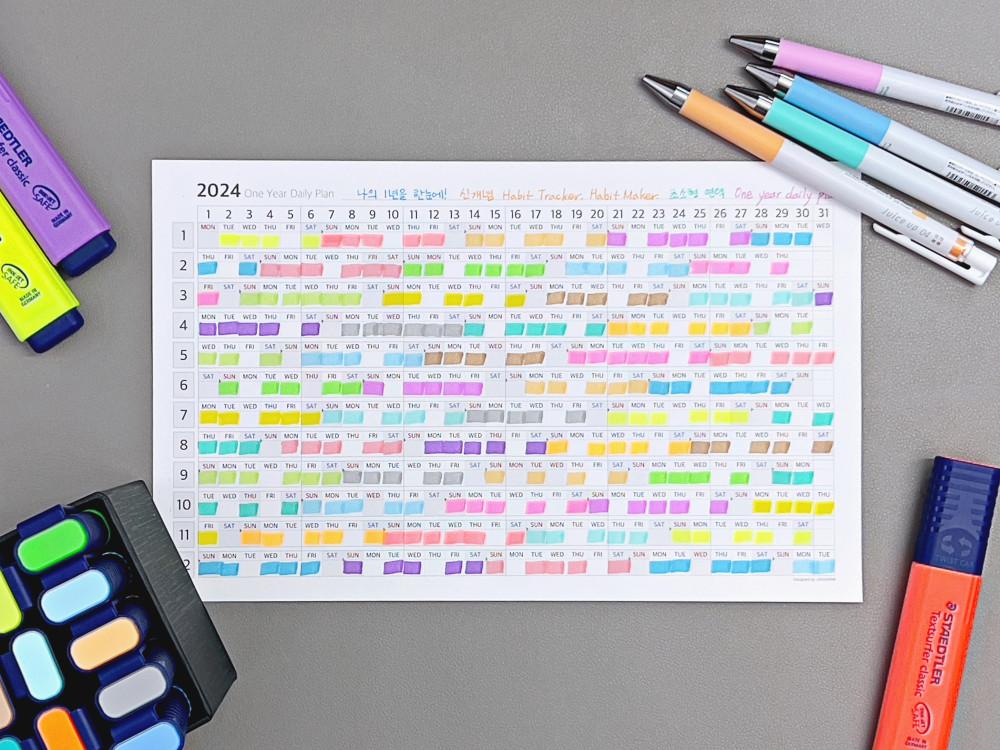 2024 One Year Daily Plan 나의 1년을 한눈에! 신개념 Habit Tracker. Habit Maker 초소형 One year daily
1 2 3 4 5 6 7 8 9 10 11 12 13 14 15 16 17 18 19 20 21 22 23 24 25 26 27 28 29 30 31
1 MON TUE WED THU FRI SAT SUN MON TUE WED THU FRI SAT SUN MON TUE WED THU FRI SAT SUN MON TUE WED THU FRI SAT SUN MON TUE WED
2 THU FRI SAT SUN MON TUE WED THU FRI SAT SUN MON TUE WED THU FRI SAT SUN MON TUE WED THU FRI SAT SUN MON TUE WED THU
3 FRI SAT SUN MON TUE WED THU FRI SAT SUN MON TUE WED THU FRI SAT SUN MON TUE WED THU FRI SAT SUN MON TUE WED THU FRI SAT SUN
4 MON TUE WED THU FRI SAT SUN MON TUE WED THU FRI SAT SUN MON TUE WED THU FRI SAT SUN MON TUE WED THU FRI SAT SUN MON TUE
5 WED THU FRI SAT SUN MON TUE WED THU FRI SAT SUN MON TUE WED THU FRI SAT SUN MON TUE WED THU FRI SAT SUN MON TUE WED THU FRI
6 SAT SUN MON TUE WED THU FRI SAT SUN MON TUE WED THU FRI SAT SUN MON TUE WED THU FRI SAT SUN MON TUE WED THU FRI SAT SUN
7 MON TUE WED THU FRI SAT SUN MON TUE WED THU FRI SAT SUN MON TUE WED THU FRI SAT SUN MON TUE WED THU FRI SAT SUN MON TUE WED
8 THU FRI SAT SUN MON TUE WED THU FRI SAT SUN MON TUE WED THU FRI SAT SUN MON TUE WED THU FRI SAT SUN MON TUE WED THU FRI SAT
9 SUN MON TUE WED THU FRI SAT SUN MON TUE WED THU FRI SAT SUN MON TUE WED THU FRI SAT SUN MON TUE WED THU FRI SAT SUN MON
10 TUE WED THU FRI SAT SUN MON TUE WED THU FRI SAT SUN MON TUE WED THU FRI SAT SUN MON TUE WED THU FRI SAT SUN MON TUE WED THU
11 FRI SAT SUN MON TUE WED THU FRI SAT SUN MON TUE WED THU FRI SAT SUN MON TUE WED THU FRI SAT SUN MON TUE WED THU FRI SAT
2 SUN MON TUE WED THU FRI SAT SUN MON TUE WED THU FRI SAT SUN MON TUE WED THU FRI SAT SUN MON TUE WED THU FRI SAT SUN MON TUE
EDTLER
classic
INK JET SAFE
MADE IN GERMANY
INK JET SAFE
MADE IN GERMANY
Juice up 04
Juice
TWIST CAP
STAEDTLER
Textsurfer classic
INK JET SAFE
MADE IN GERMANY